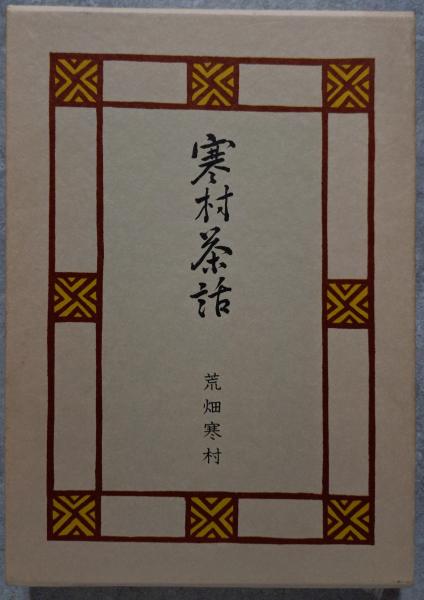 寒村茶話
荒畑寒村